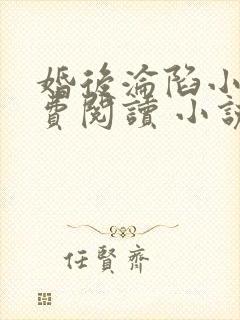 婚後淪陷小
費閱讀 小說
任賢齊